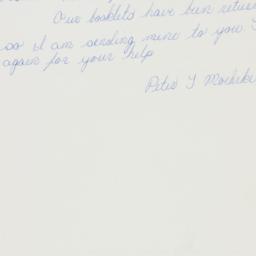 Our booklets have been retur
so I am sending mine to you
again for your help
Peter J